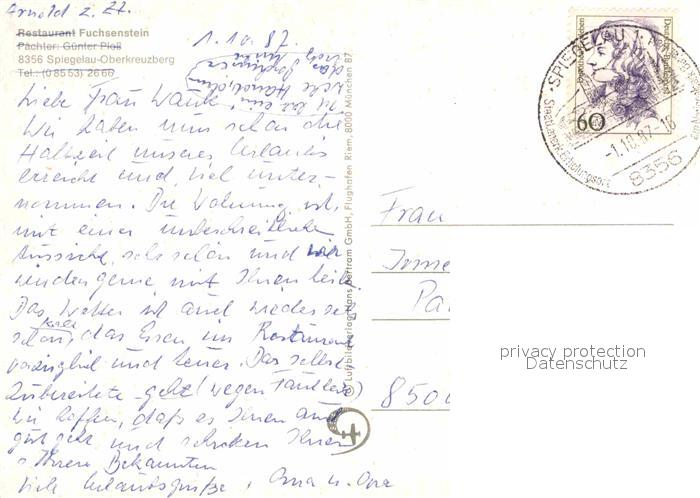 Arnold z. Zt.
Restaurant Fuchsenstein
Pächter: Günter Ploß
8356 Spiegelau-Oberkreuzberg
Tel.: (0 85 53) 26 66
1.10.87
Liebe Frau
Wir haben nun schon die
Halbzeit unseres Urlaubs
erreicht und viel unter-
nommen. Die Wohnung ist
mit einer unbeschreiblichen
Aussicht, sehr schön und wir
gerne mit Ihnen
Das Wetter ist auch wieder sehr
schön, kalt das Essen im Restaurant
vorzüglich und teuer. Das selbst
Zubereitete geht! wegen
wir hoffen, daß es Ihnen auch
gut geht und schicken Ihnen
u. Ihren Bekannten
viele Urlaubsgrüße, Oma u. Opa
Luftbildverlag Hans Bertram GmbH, Flughafen Riem, 8000 München 87
Deutsche Bundespost
60
SPIEGELAU 1
-1.10.87-16
8356
Frau
8500
privacy protection
Datenschutz